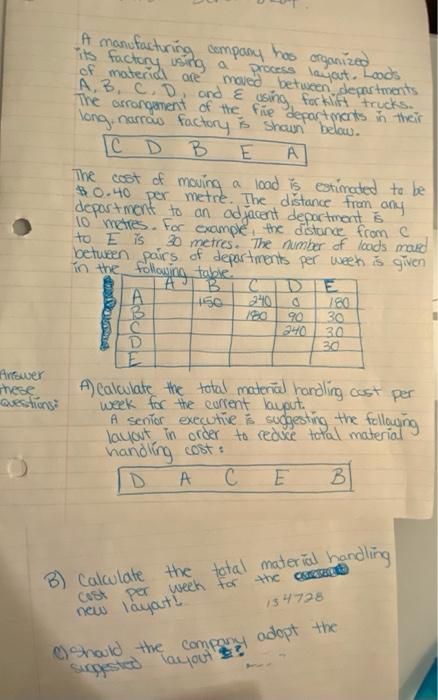 A manufacturing company has organized
its factory using a process layout. Loads
of material are moved between departments
A, B, C, D, and E using forklift trucks.
The arrangement of the five departments in their
long, narrow factory is shown below.
C D B E A
The cost of moving a load is estimated to be
$0.40 per metre. The distance from any
department to an adjacent department is
10 metres. For example, the distance from C
to E is 30 metres. The number of loads moved
between pairs of departments per week is given
in the following table.
A B C D E
A 150 240 0 180
B 180 90 30
C 240 30
D 30
E
Answer
these
Questions:
A) Calculate the total material handling cost per
week for the current layout.
A senior executive is suggesting the following
layout in order to reduce total material
handling cost:
D A C E B
B) Calculate the total material handling
cost per week for the
new layout.
134728
C) Should the company adopt the
suggested layout?